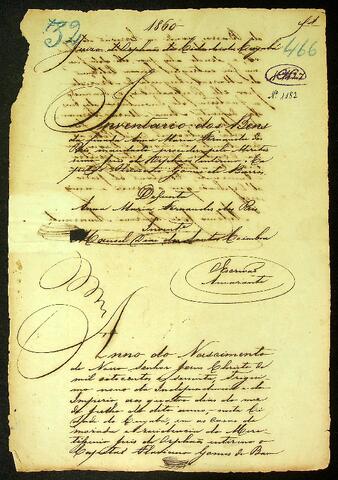 1860
f 1
52
466
Juizo d'Orphãos da Cidade de Cuyabá
Nº 1182
Inventario dos Bens
Anna Maria Fernandes do
mandado proceder pelo Meritis
simo Juiz de Orphãos interino
Gomes de Barros
Defunta
Anna Maria Fernandes do
Invente
Manoel Dias dos Santos Coimbra
Escrivão
Amarante
Anno do Nascimento
de Nosso Senhor Jesus Christo de
mil oitocentos e sessenta, trigesi
mo nono da Independencia e do
Imperio, aos quatro dias do mez
de Julho do dito anno, nesta Ci
dade de Cuyabá, em as casas de
morada e residencia do Meri
tissimo Juiz de Orphãos interino o
Capitão Gomes de Bar